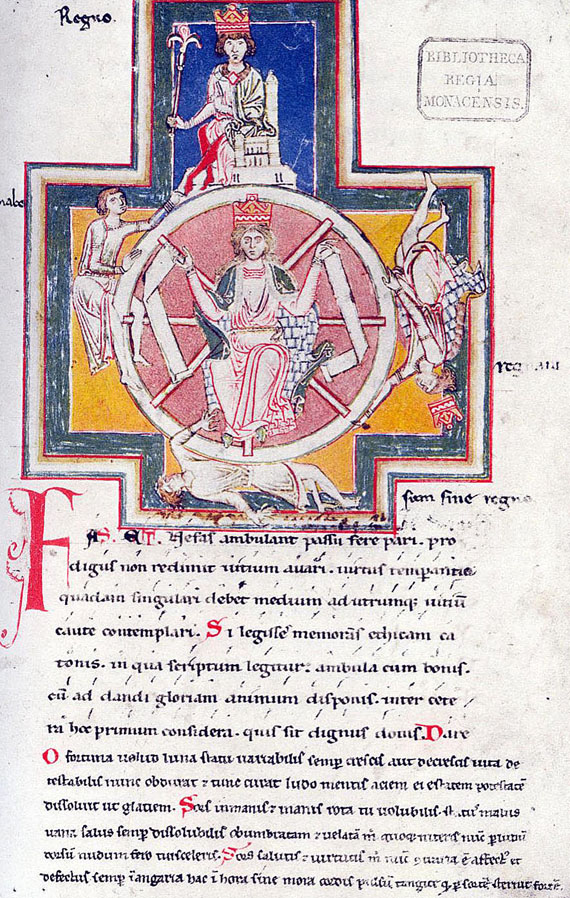 Regno.
BIBLIOTHECA
REGIA
MONACENSIS.
nabo
regnavi
sum sine regno
FAS. ET. Nefas ambulant passu fere pari. pro
digus non redimit vitium avari. virtus temperantia
quadam singulari debet medium ad utrumq; vitiū
caute contemplari. Si legisse memoras ethicam ca
tonis. in qua scriptum legitur. ambula cum bonis.
cū ad dandi gloriam animum disponis. inter cete
ra hoc primum considera. quis sit dignus donis. Dare
O fortuna velud luna statu variabilis semp crescis aut decrescis vita de
testabilis nunc obdurat & tunc curat ludo mentis aciem egestatem potestatē
dissolvit ut glaciem. Sors inmanis & inanis rota tu volubilis. status malus
vana salus semp dissolubilis obumbratam & velatā m quoq; niteris nūc p ludū
dorsum nudum fero tui sceleris. Sors salutis & virtutis m nūc ē affect' et
defectus semp in angaria hac ī hora sine mora cordis pulsū tangite q p sortē sternit fortē.